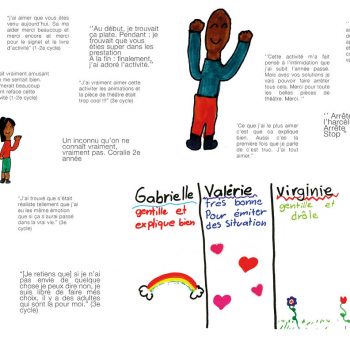 "J'ai aimer que vous êtes
veny aujourd'hui. Sa me
aider merci beaucoup et
merci encore et merci
pour le signet et le livre
d'activité" (1-2e cycle)
"Au début, je trouvait
ça plate. Pendant : je
trouvait que vous
étiés super dans les
prestation
À la fin : finalement,
j'ai adoré l'activité."
"Cette activité m'a fait
pensé à l'intimidation que
j'ai subit l'année passé.
Mais avec vos solutions je
vais pouvoir faire arrêter
tous cela. Merci pour toute
les belles pièces de
théâtre. Merci. "
était vraiment amusant
me sernait bien.
merait beaucoup
fait reface cette
" (2e cycle)
"J'ai vraiment aimer cette
activiter les animations et
la pièce de théâtre était
trop cool !!" (3e cycle)
" Arrête
l'harcèl
Arrête
Stop "
Un inconnu qu'on ne
connait vraiment,
vraiment pas. Coralie 2e
année
"Ce que j'ai le plus aimer
c'est que ca explique
bien. Aussi c'es la
première fois que je parle
de c'est truc. J'ai tout
aimer."
"J'ai trouvé que s'était
réaliste tellement que j'ai
eu les même émotion
que si ça s'aurai passé
dans la vrai vie." (3e
cycle)
"[Je retiens que] si je n'ai
pas envie de quelque
chose je peux dire non, je
suis libre de faire mes
choix, il y a des adultes
qui sont là pour moi." (3e
cycle)
Gabrielle
gentille et
explique bien
Valérie
très bonne
Pour émiter
des situation
Virginie
gentille et
drôle